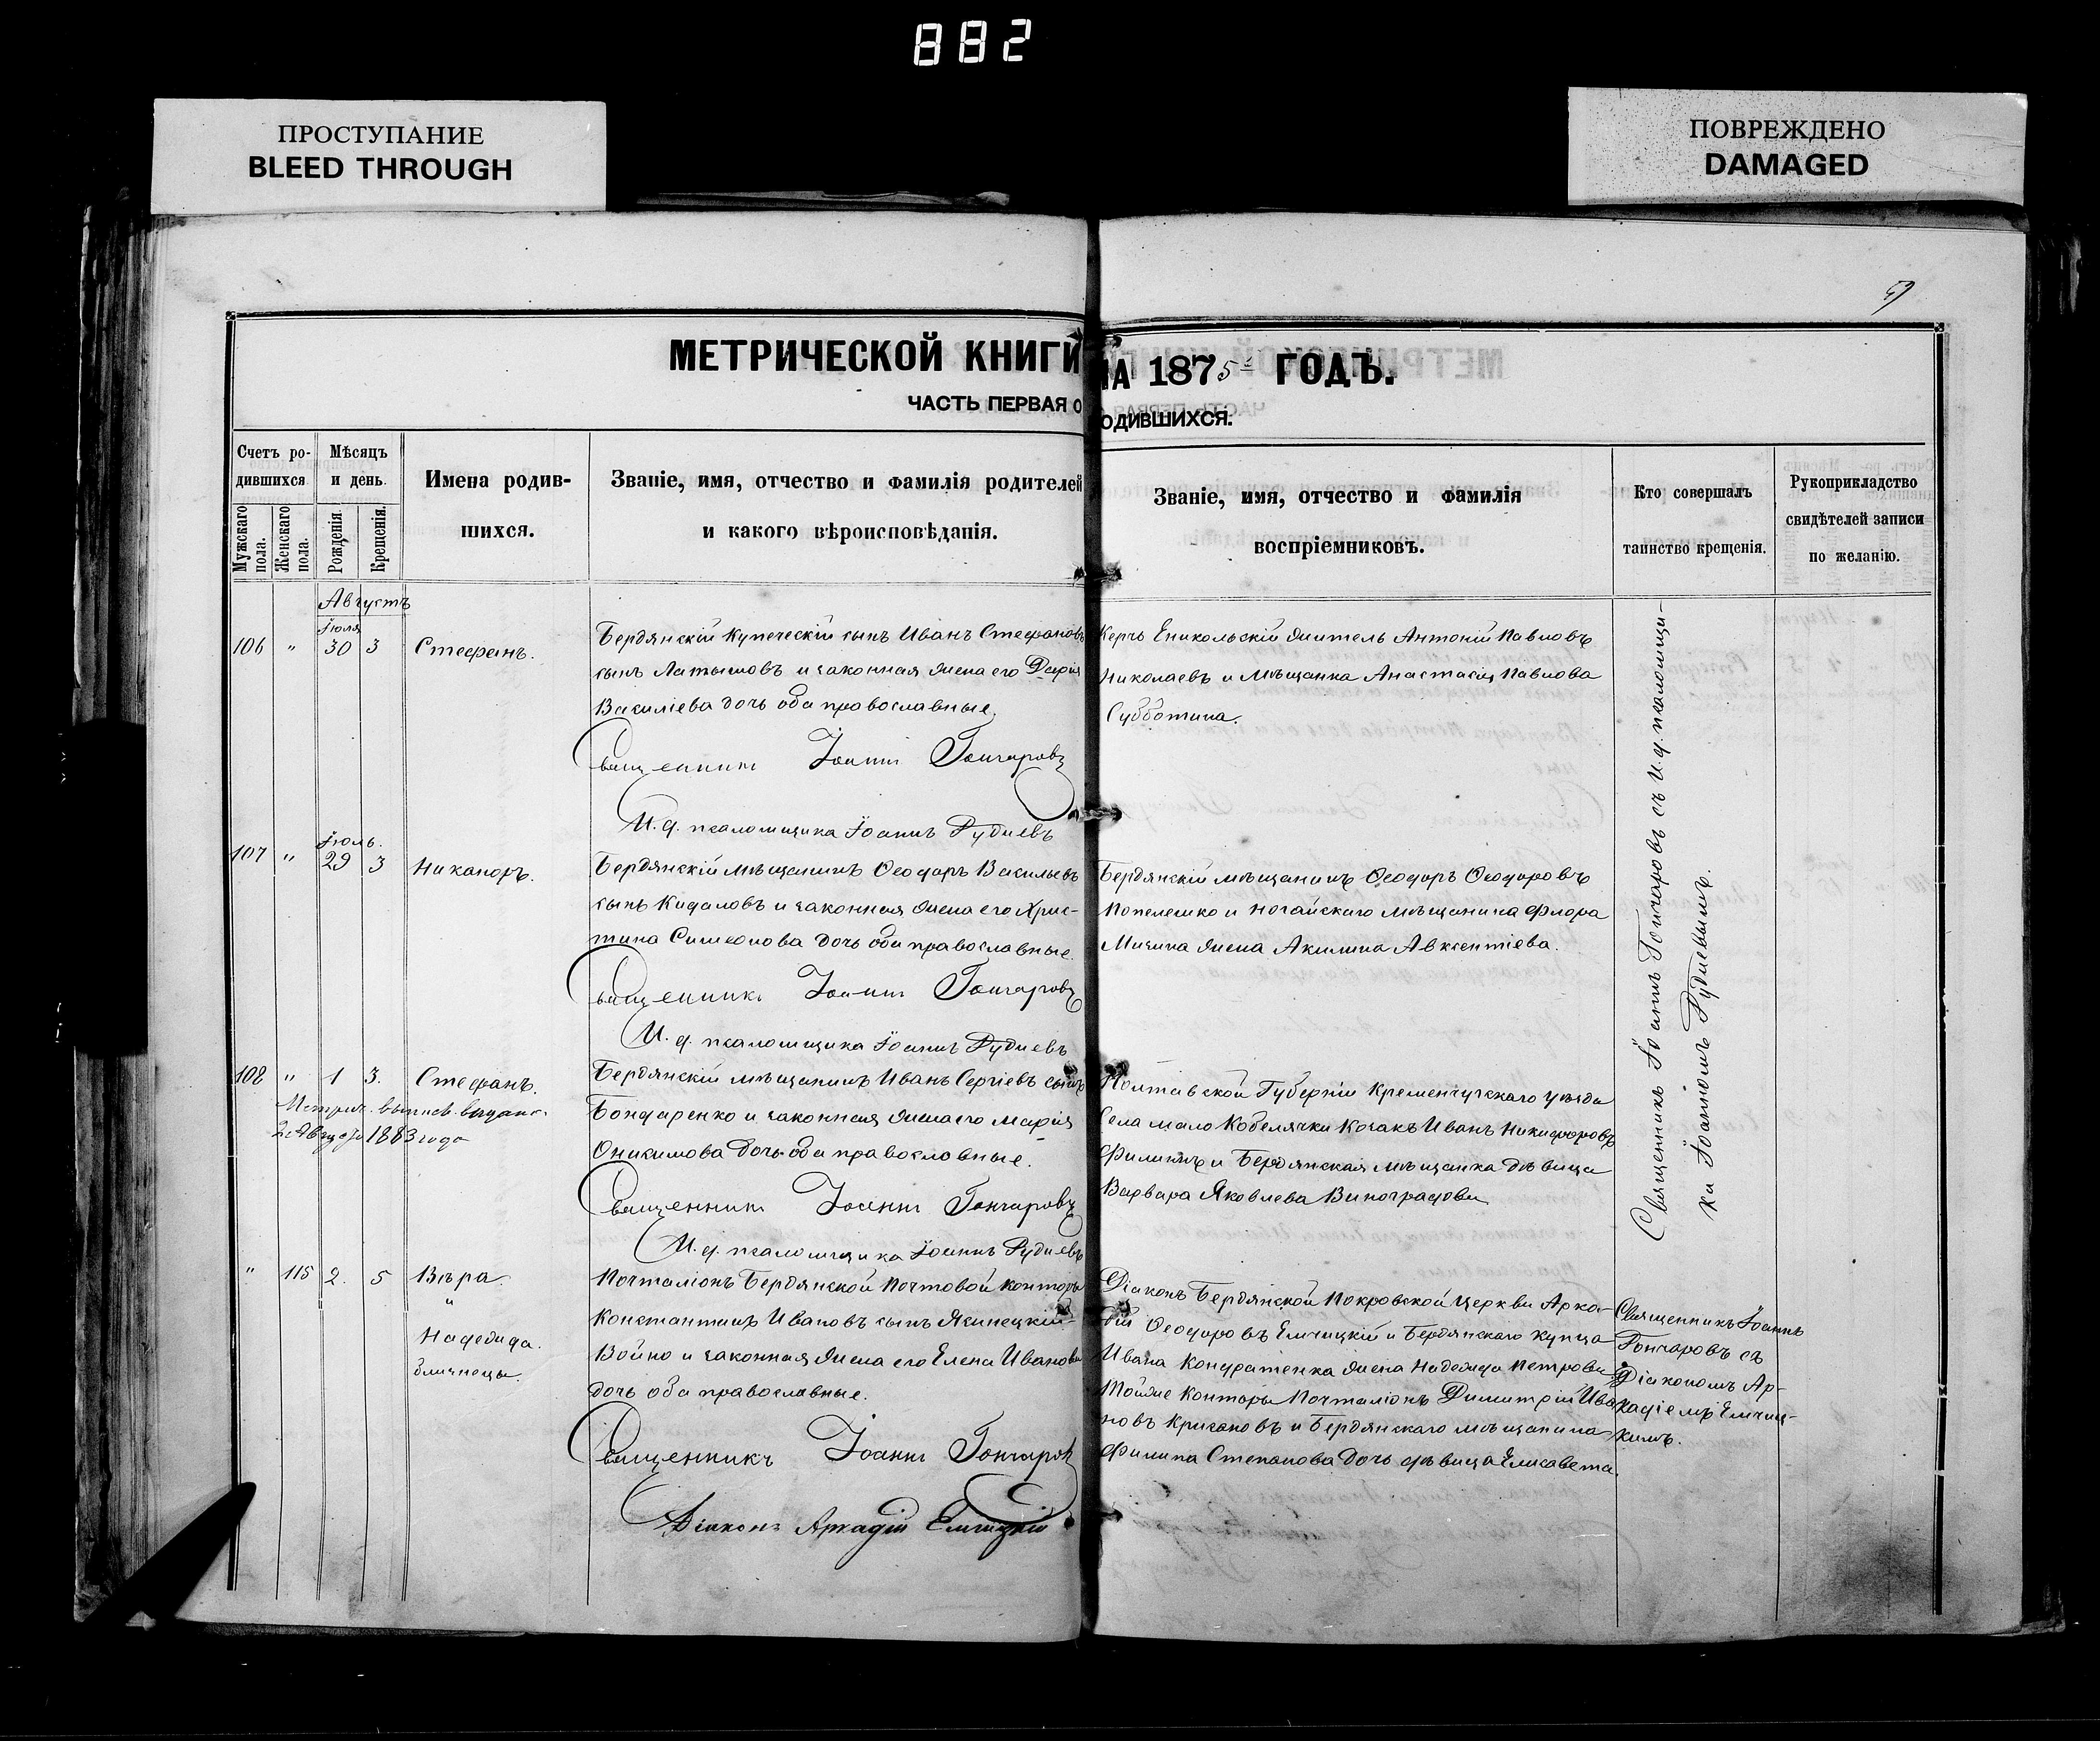 882
ПРОСТУПАНИЕ
BLEED THROUGH
ПОВРЕЖДЕНО
DAMAGED
МЕТРИЧЕСКОЙ КНИГИ НА 1875 ГОДЪ.
ЧАСТЬ ПЕРВАЯ О РОДИВШИХСЯ.
Счетъ ро-
дившихся
Мужскаго пола.
Женскаго пола.
Мѣсяцъ
и день.
Рожденія
Крещенія.
Имена родив-
шихся.
Званіе, имя, отчество и фамилія родителей
и какого вѣроисповѣданія.
Званіе, имя, отчество и фамилія
воспріемниковъ.
Кто совершалъ
таинство крещенія.
Рукоприкладство
свидѣтелей записи
по желанію.
Августъ
Іюля
106 " 30 3 Стефанъ.
Бердянскій купеческій сынъ Иванъ Стефановъ
сынъ Латышовъ и законная жена его Дарія
Василіева дочь оба православные.
Священникъ Іоаннъ Гончаровъ
И. д. псаломщика Іоаннъ Рудневъ
Керчь Еникольскій житель Антоній Павловъ
Николаевъ и мѣщанка Анастасія Павлова
Субботина.
Іюль.
107 " 29 3 Никаноръ.
Бердянскій мѣщанинъ Ѳеодоръ Васильевъ
сынъ Кидаловъ и законная жена его Хрис-
тина Симеонова дочь оба православные.
Священникъ Іоаннъ Гончаровъ
И. д. псаломщика Іоаннъ Рудневъ
Бердянскій мѣщанинъ Ѳеодоръ Ѳеодоровъ
Попелешко и ногайскаго мѣщанина Флора
жена Акилина Авксентіева.
108 " 1 3. Стефанъ.
Метрич. выпись выдана
2 Августа 1883 года
Бердянскій мѣщанинъ Иванъ Сергіевъ сынъ
Бондаренко и законная жена его Марія
Онисимова дочь оба православные.
Священникъ Іоаннъ Гончаровъ
И. д. псаломщика Іоаннъ Рудневъ
Полтавской Губерніи Кременчугскаго уѣзда
села мало Кобелячки Козакъ Иванъ Никифоровъ
и Бердянская мѣщанка дѣвица
Варвара Яковлева Виноградова
Священникъ Іоаннъ Гончаровъ съ И. д. псаломщи-
ка Іоанномъ Рудневымъ.
" 115 2. 5 Вѣра.
"
Надежда.
близнецы.
Почталіонъ Бердянской Почтовой конторы
Константинъ Ивановъ сынъ Ясинецкій-
Войно и законная жена его Елена Иванова
дочь оба православные.
Священникъ Іоаннъ Гончаровъ
Діаконъ Аркадій Емчицкій
Діаконъ Бердянской Покровской Церкви Арка-
дій Ѳеодоровъ Емчицкій и Бердянскаго купца
Ивана Кондратенка жена Надежда Петрова
Тойже Конторы Почталіонъ Димитрій Ива-
новъ и Бердянскаго мѣщанина
Филипа Степанова дочь дѣвица Елисавета.
Священникъ Іоаннъ
Гончаровъ съ
Діакономъ Ар-
кадіемъ Емчиц-
кимъ.